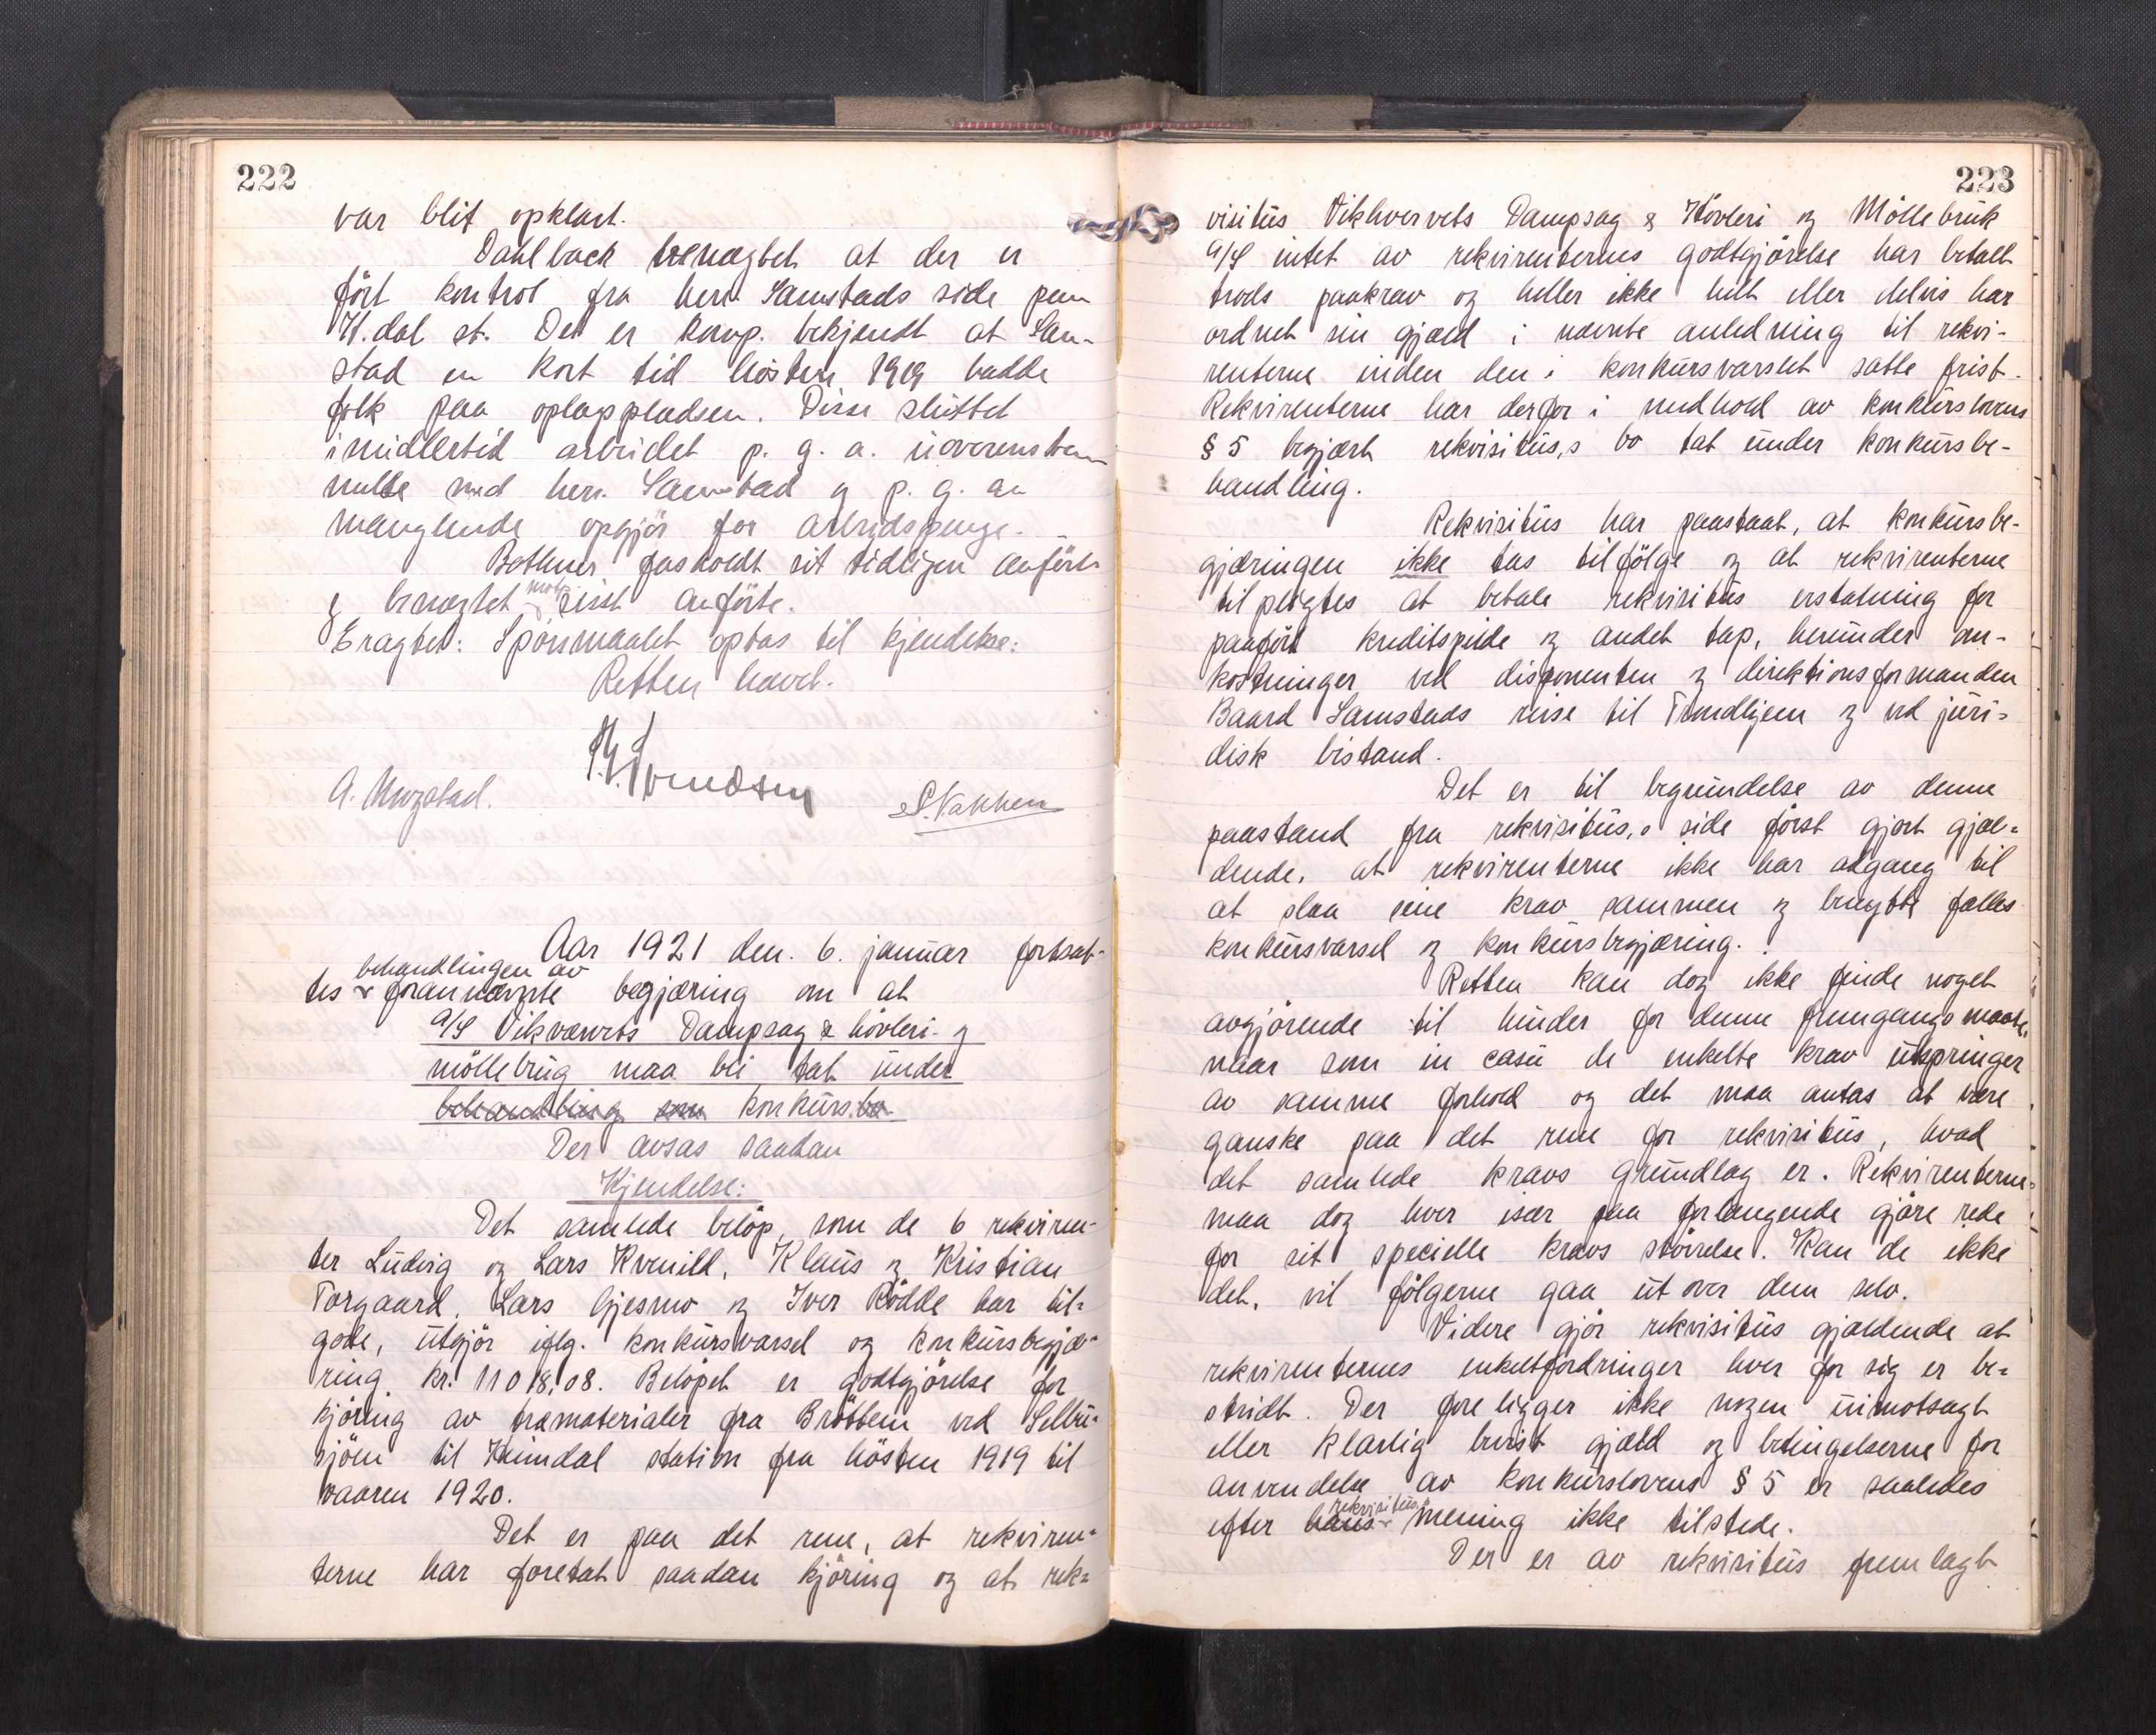 222
var blit opklart.
Dahlback benegtet at der er
fört kontrol fra herr Samstads side paa
H.dal st. Det er komp. bekjendt at Sam-
stad en kort tid hösten 1919 hadde
folk paa oplagspladsen. Disse sluttet
imidlertid arbeidet p. g. a. uoverensstem
melse med herr Samstad og p. g. av
manglende opgjör for arbeidspenge.
Bothner fastholdt sit tidligere anförte
og benegtet mot sidst anförte.
Eragtet: Spörsmaalet optas til kjendelse:
Retten hævet.
A. Mogstad.
S. Vakken
Aar 1921 den. 6. januar fortsat-
behandlingen av
tes forannævnte begjæring om at
A/S Vikværvets Dampsag & hövleri- og
möllebrug maa bli tat under
behandling som konkurs.bo.
Der avsas saadan
Kjendelse:
Det samlede belöp, som de 6 rekviren-
ter Ludvig og Lars Kvenild, Klaus og Kristian
Torgaard, Lars Gjesmo og Iver Rödde har til-
gode, utgjör iflg. konkursvarsel og konkursbegjæ-
ring kr. 11018,08. Belöpet er godtgjörelse for
kjöring av træmaterialer fra Bröttem ved Selbu-
sjöen til Heimdal station fra hösten 1919 til
vaaren 1920.
Det er paa det rene, at rekviren-
terne har foretat saadan kjöring og at rek-
223
visitus Vikhvervets Dampsag & Hövleri og Möllebruk
A/S intet av rekvirenternes godtgjörelse har betalt
trods paakrav og heller ikke helt eller delvis har
ordnet sin gjæld i nævnte anledning til rekvi-
renterne inden den i konkursvarslet satte frist.
Rekvirenterne har derfor i medhold av konkurslovens
§ 5 begjært rekvisitus,s bo tat under konkursbe-
handling.
Rekvisitus har paastaat, at konkursbe-
gjæringen ikke tas tilfölge og at rekvirenterne
tilpligtes at betale rekvisitus erstatning for
paafört kreditspilde og andet tap, herunder om-
kostninger ved disponenten og direktionsformanden
Baard Samstads reise til Trondhjem og ved juri-
disk bistand.
Det er til begrundelse av denne
paastand fra rekvisitus,s side först gjort gjæl-
dende, at rekvirenterne ikke har adgang til
at slaa sine krav sammen og benytte fælles
konkursvarsel og konkursbegjæring.
Retten kan dog ikke finde noget
avgjörende til hinder for denne fremgangsmaate,
naar som in casu de enkelte krav utspringer
av samme forhold og det maa antas at være
ganske paa det rene for rekvisitus, hvad
det samlede kravs grundlag er. Rekvirenterne
maa dog hver især paa forlangende gjöre rede
for sit specielle kravs störrelse. Kan de ikke
det, vil fölgerne gaa ut over dem selv.
Videre gjör rekvisitus gjældende at
rekvirenternes enkeltfordringer hver for sig er be-
stridt. Der foreligger ikke nogen uimotsagt
eller klarlig bevist gjæld og betingelserne for
anvendelse av konkurslovens § 5 er saaledes
rekvisitus,s
efter hans mening ikke tilstede.
Der er av rekvisitus fremlagt